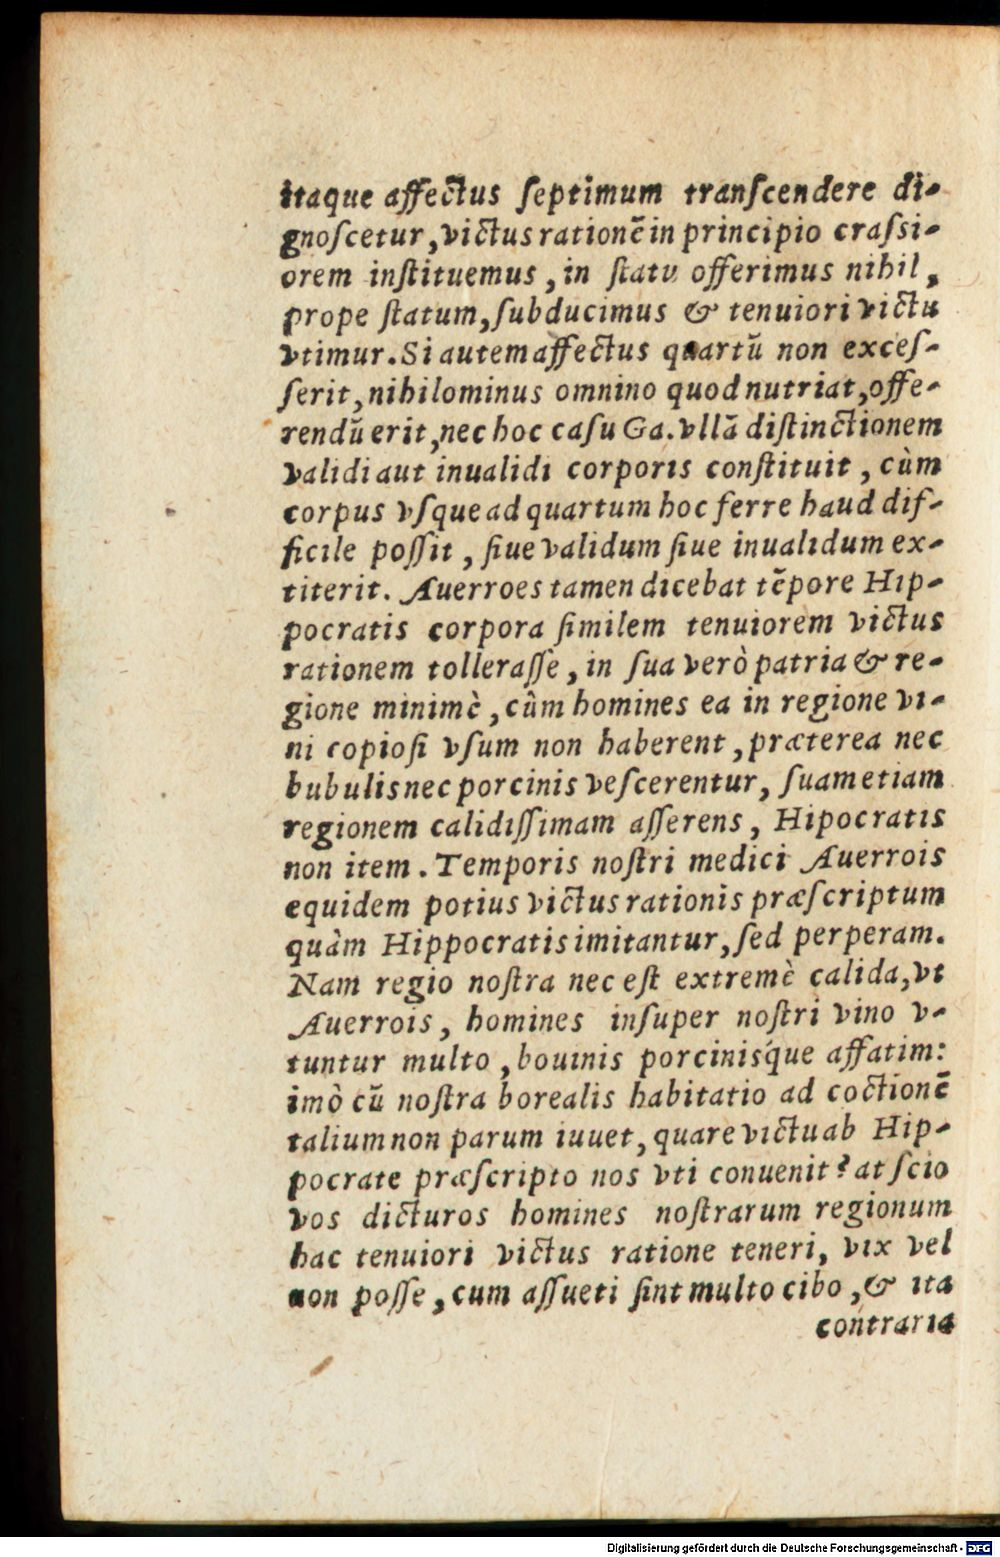 itaque affectus ſeptimum tranſcendere di-
gnoſcetur, victus rationẽ in principio craſsi-
orem inſtituemus, in ſtatu offerimus nihil,
prope ſtatum, ſubducimus & tenuiori victu
vtimur. Si autem affectus quartũ non exceſ-
ſerit, nihilominus omnino quod nutriat, offe-
rendũ erit, nec hoc caſu Ga. vllã diſtinctionem
validi aut inualidi corporis conſtituit, cùm
corpus vſque ad quartum hoc ferre haud dif-
ficile poſſit, ſiue validum ſiue inualidum ex-
titerit. Auerroes tamen dicebat tẽpore Hip-
pocratis corpora ſimilem tenuiorem victus
rationem tolleraſſe, in ſua verò patria & re-
gione minimè, cûm homines ea in regione vi-
ni copioſi vſum non haberent, præterea nec
bubulis nec porcinis veſcerentur, ſuam etiam
regionem calidiſſimam aſſerens, Hipocratis
non item. Temporis noſtri medici Auerrois
equidem potius victus rationis præſcriptum
quàm Hippocratis imitantur, ſed perperam.
Nam regio noſtra nec eſt extremè calida, vt
Auerrois, homines inſuper noſtri vino v-
tuntur multo, bouinis porcinisq́ue affatim:
imò cũ noſtra borealis habitatio ad coctionẽ
talium non parum iuuet, quare victu ab Hip-
pocrate præſcripto nos vti conuenit? at ſcio
vos dicturos homines noſtrarum regionum
hac tenuiori victus ratione teneri, vix vel
non poſſe, cum aſſueti ſint multo cibo, & ita
contraria
Digitalisierung gefördert durch die Deutsche Forschungsgemeinschaft - DFG